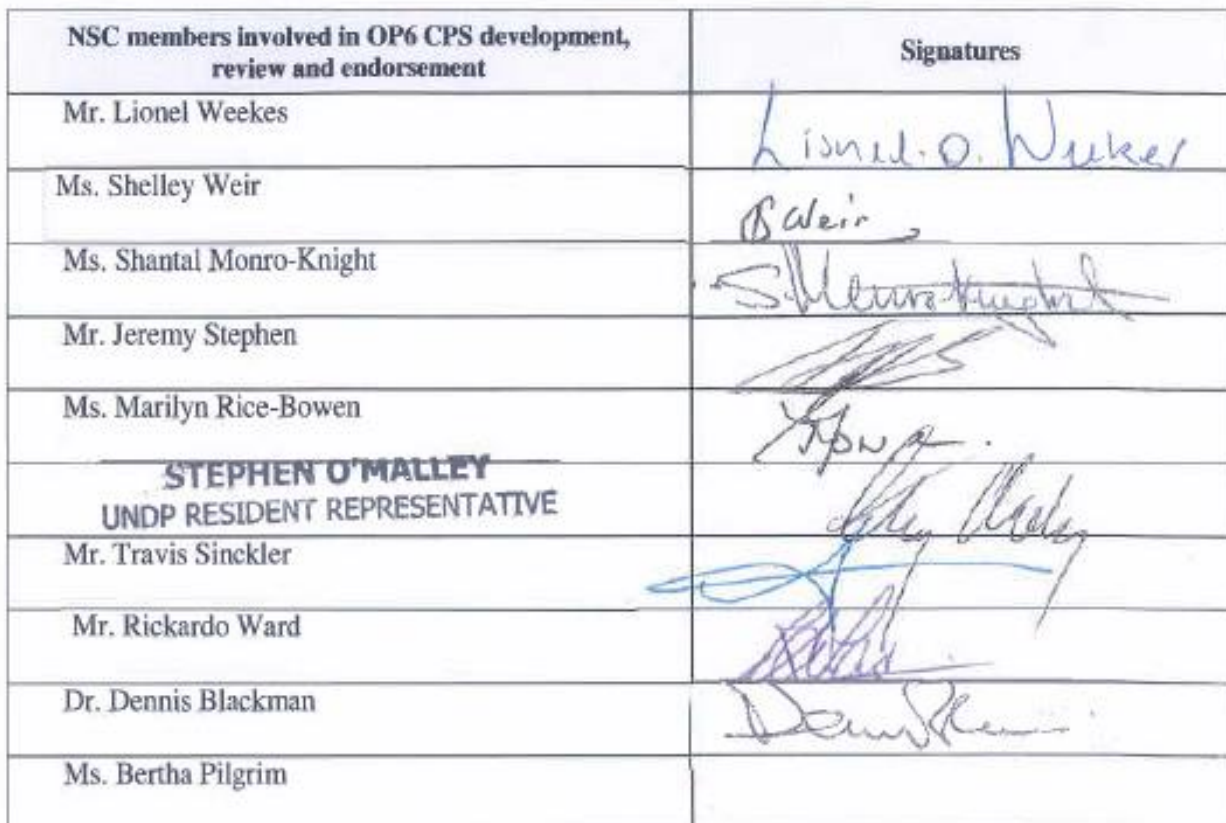 NSC members involved in OP6 CPS development,
review and endorsement
Signatures
Mr. Lionel Weekes
Lionel. O. Weekes
Ms. Shelley Weir
S Weir
Ms. Shantal Monro-Knight
S. Monro-Knight
Mr. Jeremy Stephen
Ms. Marilyn Rice-Bowen
STEPHEN O'MALLEY
UNDP RESIDENT REPRESENTATIVE
Mr. Travis Sinckler
Mr. Rickardo Ward
Dr. Dennis Blackman
Ms. Bertha Pilgrim